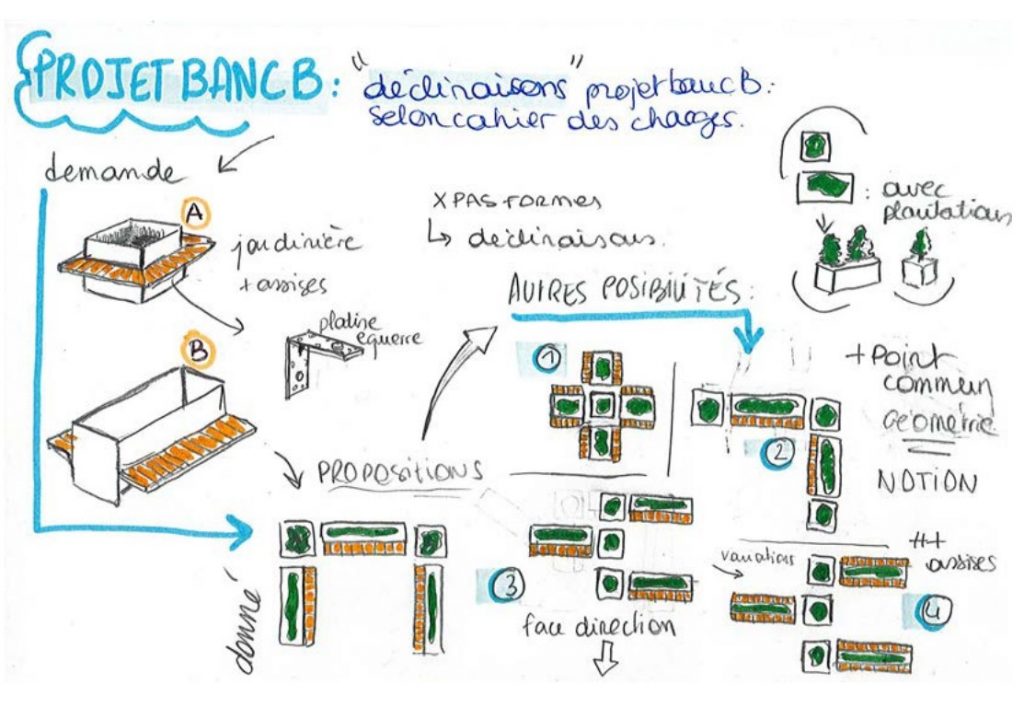 PROJET BANC B :
"déclinaisons" projet banc B :
selon cahier des charges.
demande
A
jardinière
+ assises
platine
equerre
B
X PAS FORMES
↳ déclinaisons.
: avec
plantations
AUTRES POSIBILITÉS :
1
2
+ Point
commun
Géométrie
NOTION
PROPOSITIONS
donné
3
face direction
variations
+++
assises
4